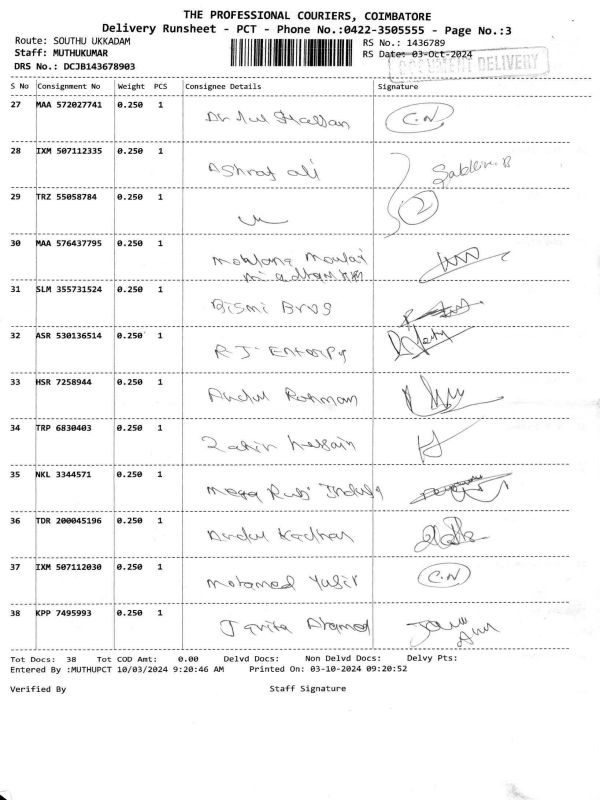 THE PROFESSIONAL COURIERS, COIMBATORE
Delivery Runsheet - PCT - Phone No.:0422-3505555 - Page No.:3
Route: SOUTHU UKKADAM RS No.: 1436789
Staff: MUTHUKUMAR RS Date: 03-Oct-2024
DOCUMENT DELIVERY
DRS No.: DCJB143678903
S No Consignment No Weight PCS Consignee Details Signature
27 MAA 572027741 0.250 1 C.N
28 IXM 507112335 0.250 1 Ashraf ali
29 TRZ 55058784 0.250 1 2
30 MAA 576437795 0.250 1
31 SLM 355731524 0.250 1 Bismi Bros
32 ASR 530136514 0.250 1 R.J. Enterpr
33 HSR 7258944 0.250 1 Abdul Rahman
34 TRP 6830403 0.250 1 Zakir Hussain
35 NKL 3344571 0.250 1 Mega Rubi Indust
36 TDR 200045196 0.250 1 Abdul Kadhar
37 IXM 507112030 0.250 1 Mohamed Yusif C.N
38 KPP 7495993 0.250 1 Ahamed
Tot Docs: 38 Tot COD Amt: 0.00 Delvd Docs: Non Delvd Docs: Delvy Pts:
Entered By :MUTHUPCT 10/03/2024 9:20:46 AM Printed On: 03-10-2024 09:20:52
Verified By Staff Signature